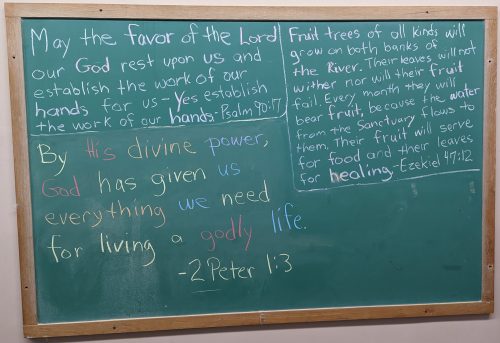 May the favor of the Lord
our God rest upon us and
establish the work of our
hands for us - Yes establish
the work of our hands. Psalm 90:17
Fruit trees of all kinds will
grow on both banks of
the River. Their leaves will not
wither nor will their fruit
fail. Every month they will
bear fruit, because the water
from the Sanctuary flows to
them. Their fruit will serve
for food and their leaves
for healing. -Ezekiel 47:12
By His divine power,
God has given us
everything we need
for living a godly life.
-2 Peter 1:3